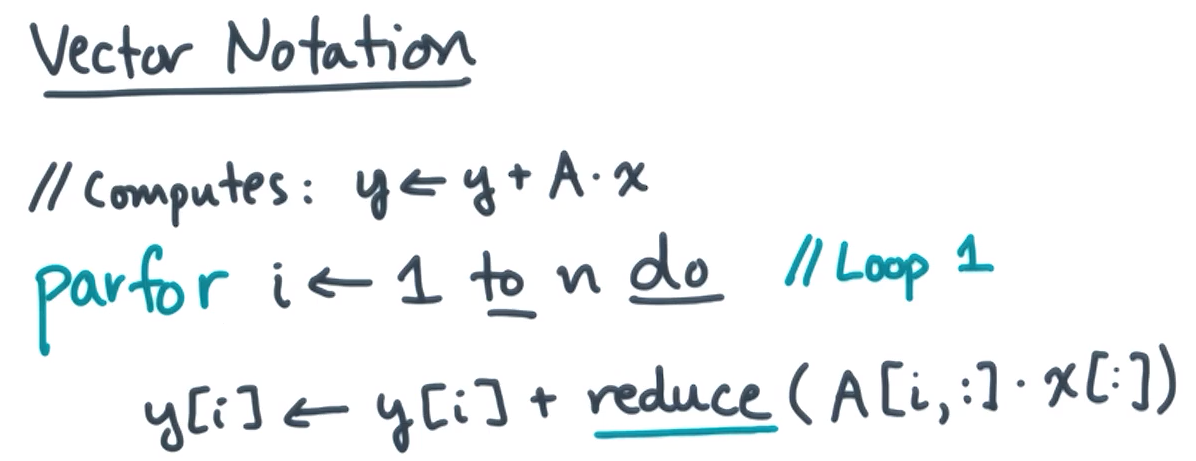 Vector Notation
// Computes: y ← y + A · x
parfor i ← 1 to n do // Loop 1
y[i] ← y[i] + reduce (A[i,:] · x[:])